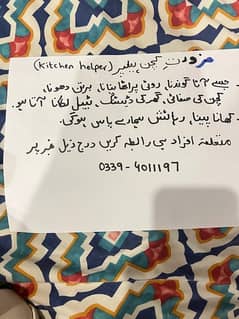 ضرورت کچن ہیلپر (Kitchen helper)
- جسے آٹا گوندنا، روٹی پراٹھا بنانا، برتن دھونا،
کچن کی صفائی، گھر کی ڈسٹنگ، ٹیبل لگانا آتا ہو۔
- کھانا پینا، رہائش ہمارے پاس ہوگی۔
متعلقہ افراد ہی رابطہ کریں درج ذیل نمبر پر
0339-4011197